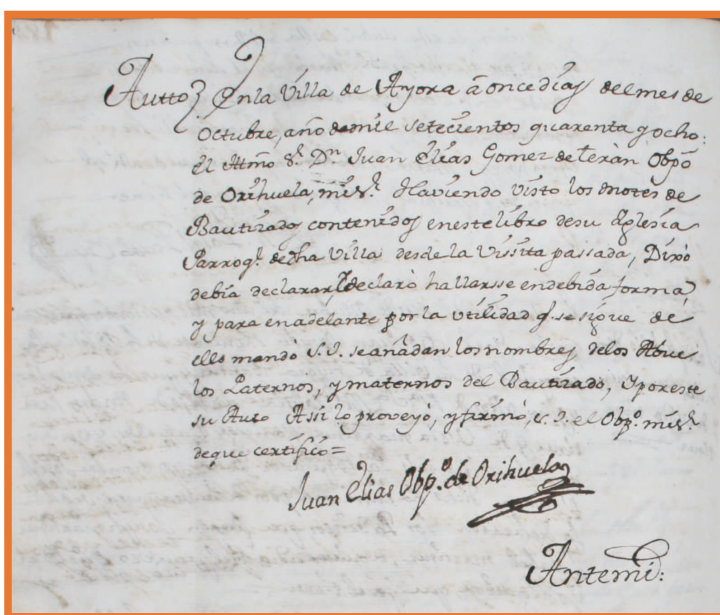 Autto En la Villa de Ayora à once dias del mes de
Octubre, año de mil setecientos quarenta y ocho:
El Illmo Sr. Dn. Juan Elias Gomez de Teràn Obpo
de Orihuela, mi Sr. Haviendo visto los motes de
Bautizados contenidos en este libro de su Iglesia
Parroql. de dha Villa desde la Vissita passada, Dixo
debia declarar, y declaró hallarsse en debida forma,
y para en adelante por la utilidad q. se sigue de
ello mandò S.I. se añadan los nombres de los Abue
los Paternos, y maternos del Bautizado, y por este
su Auto Assi lo proveyò, y firmò, S.I. el Obpo. mi Sr.
de que certifico=
Juan Elias Obpo. de Orihuela
Ante mi: